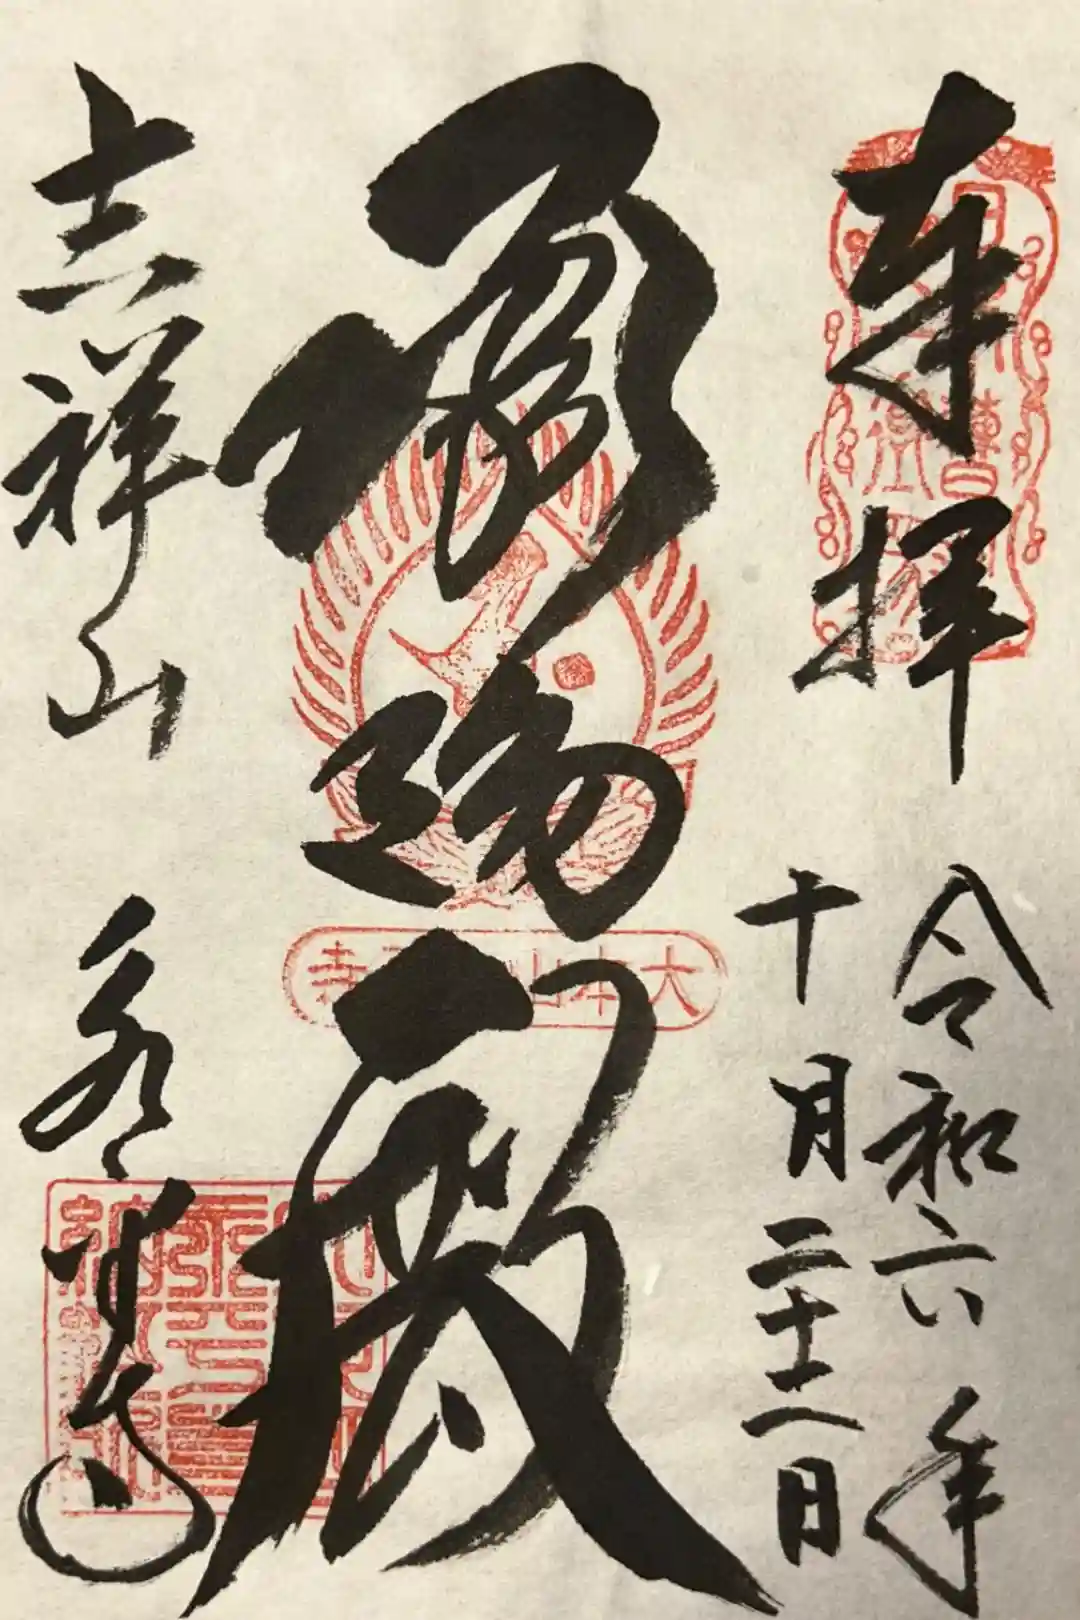 奉拝
令和六年
十月二十二日
承陽殿
大本山永平寺
吉祥山
永平寺